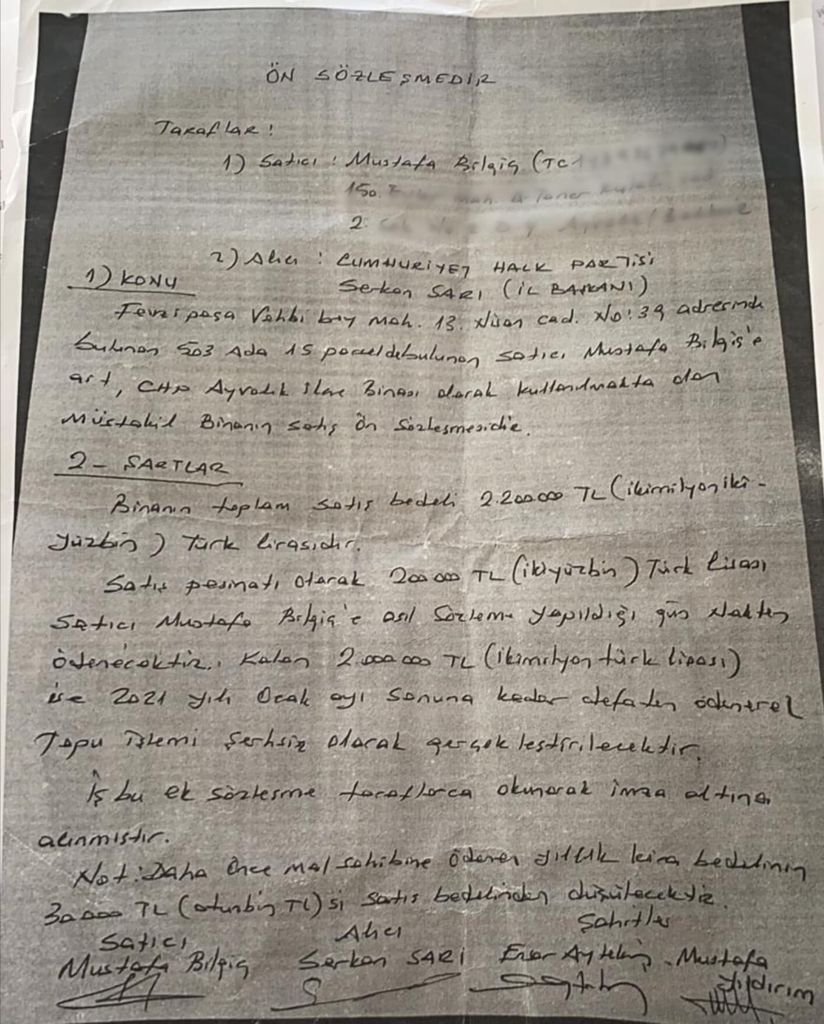 ÖN SÖZLEŞMEDİR
Taraflar:
1) Satıcı: Mustafa Bilgiç (TC
150.
2.
2) Alıcı: CUMHURİYET HALK PARTİSİ
Serkan SARI (İL BAŞKANI)
1) KONU
Fevzi paşa Vehbi bey Mah. 13. Nisan cad. No: 39 adresinde
bulunan 503 Ada 15 parseldebulunan satıcı Mustafa Bilgiç'e
ait, CHP Ayvalık ilçe Binası olarak kullanılmakta olan
Müstakil Binanın satış Ön Sözleşmesidir.
2 - ŞARTLAR
Binanın toplam satış bedeli 2.200000 TL (ikimilyoniki-
yüzbin) Türk lirasıdır.
Satış peşinatı olarak 200000 TL (ikiyüzbin) Türk Lirası
Satıcı Mustafa Bilgiç'e asıl Sözleme yapıldığı gün Nakten
ödenecektir. Kalan 2.000000 TL (ikimilyon türk lirası)
ise 2021 yılı Ocak ayı sonuna kadar defaten ödenerek
Tapu işlemi Şerhsiz olarak gerçekleştirilecektir.
İş bu ek sözleşme taraflarca okunarak imza altına
alınmıştır.
Not: Daha Önce mal sahibine ödenen yıllık kira bedelinin
30000 TL (otuzbin TL) si satış bedelinden düşülecektir.
Satıcı Alıcı Şahitler
Mustafa Bilgiç Serkan SARI Ensar Aytekin - Mustafa
Yıldırım